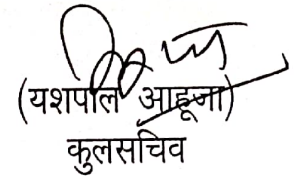 (यशपाल आहूजा)
कुलसचिव